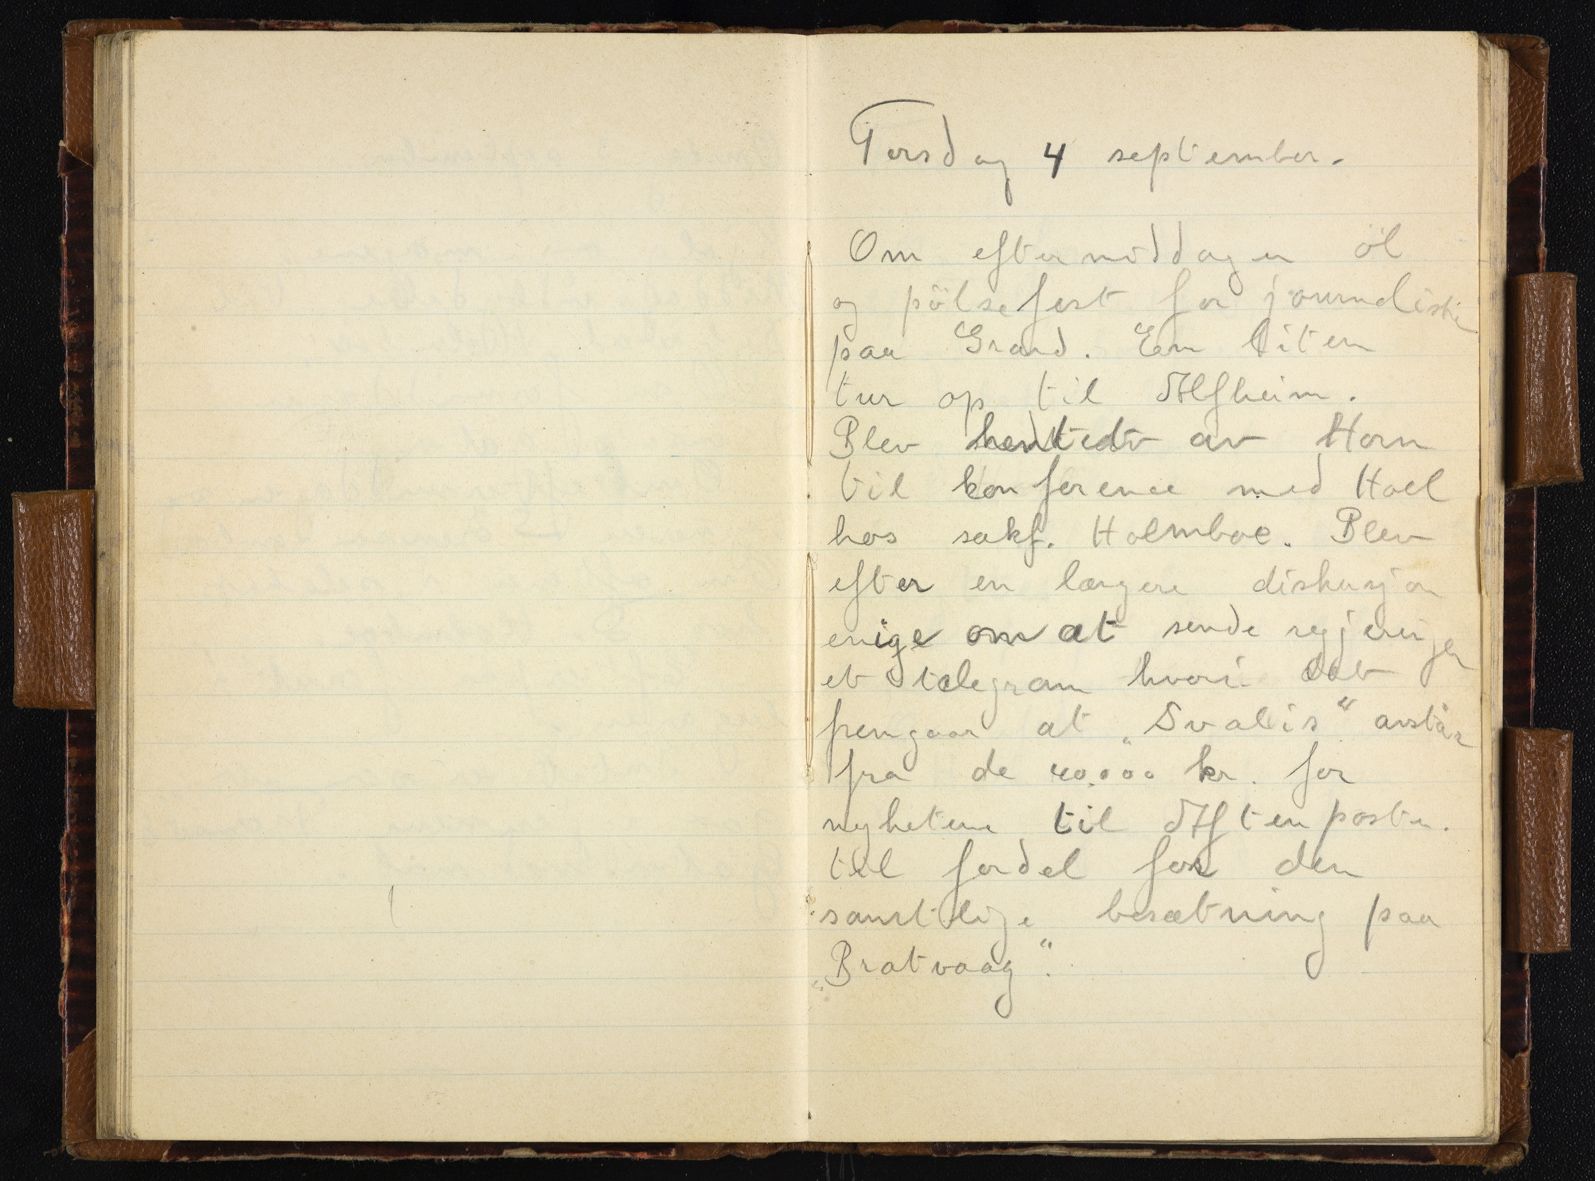 Torsdag 4 september.
Om eftermiddagen øl
og pölsefest for journalister
paa Grand. En liten
tur op til Alfheim.
Blev hentet av Horn
til konference med Hoel
hos sakf. Holmboe. Blev
efter en længere diskusjon
enige om at sende regjeringen
et telegram hvori det
fremgaar at „Svalis" avstår
fra de 40.000 kr. for
nyhetene til Aftenposten.
til fordel for den
samtlige besætning paa
„Bratvaag".